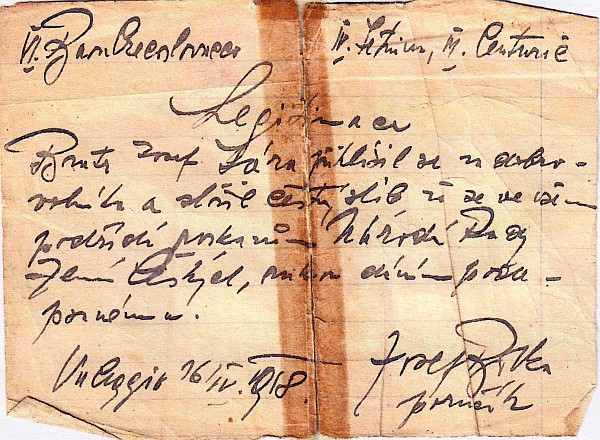 VI. Baon Cecoslovacco IV. Setnina, IV. Centurie
Legitimace
Bratr Josef Sára přihlásil se za dobro-
volníka a složil čestný slib že se ve všem
podřídí poskazům Národní Rady
Zemí Českých, rukou dáním poda-
pornému.
Valeggio 16/IV. 1918. Josef
poručík